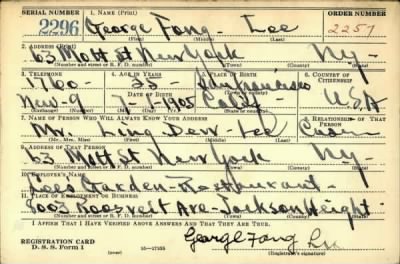 SERIAL NUMBER 1. NAME (Print) ORDER NUMBER
2296 George Fong Lee 2257
(First) (Middle) (Last)
2. ADDRESS (Print)
63 Mott St New York Ny-
(Number and street or R. F. D. number) (Town) (County) (State)
3. TELEPHONE 4. AGE IN YEARS 5. PLACE OF BIRTH 6. COUNTRY OF CITIZENSHIP
35
DATE OF BIRTH
Calif U.S.A
1905
(Exchange) (No.) (Mo.) (Day) (Yr.) (State or country)
7. NAME OF PERSON WHO WILL ALWAYS KNOW YOUR ADDRESS 8. RELATIONSHIP OF THAT PERSON
Mr. Ling Dew- Lee Cusin
(Mr., Mrs., Miss) (First) (Middle) (Last)
9. ADDRESS OF THAT PERSON
63 Mott St New York Ny-
(Number and street or R. F. D. number) (Town) (County) (State)
10. EMPLOYER'S NAME
Lee's Garden- Restaurant-
11. PLACE OF EMPLOYMENT OR BUSINESS
8003 Roosevelt Ave- Jackson Height-
(Number and street or R. F. D. number) (Town) (County) (State)
I AFFIRM THAT I HAVE VERIFIED ABOVE ANSWERS AND THAT THEY ARE TRUE.
REGISTRATION CARD
D. S. S. Form 1 (over) George Fong Lee
(Registrant's signature)